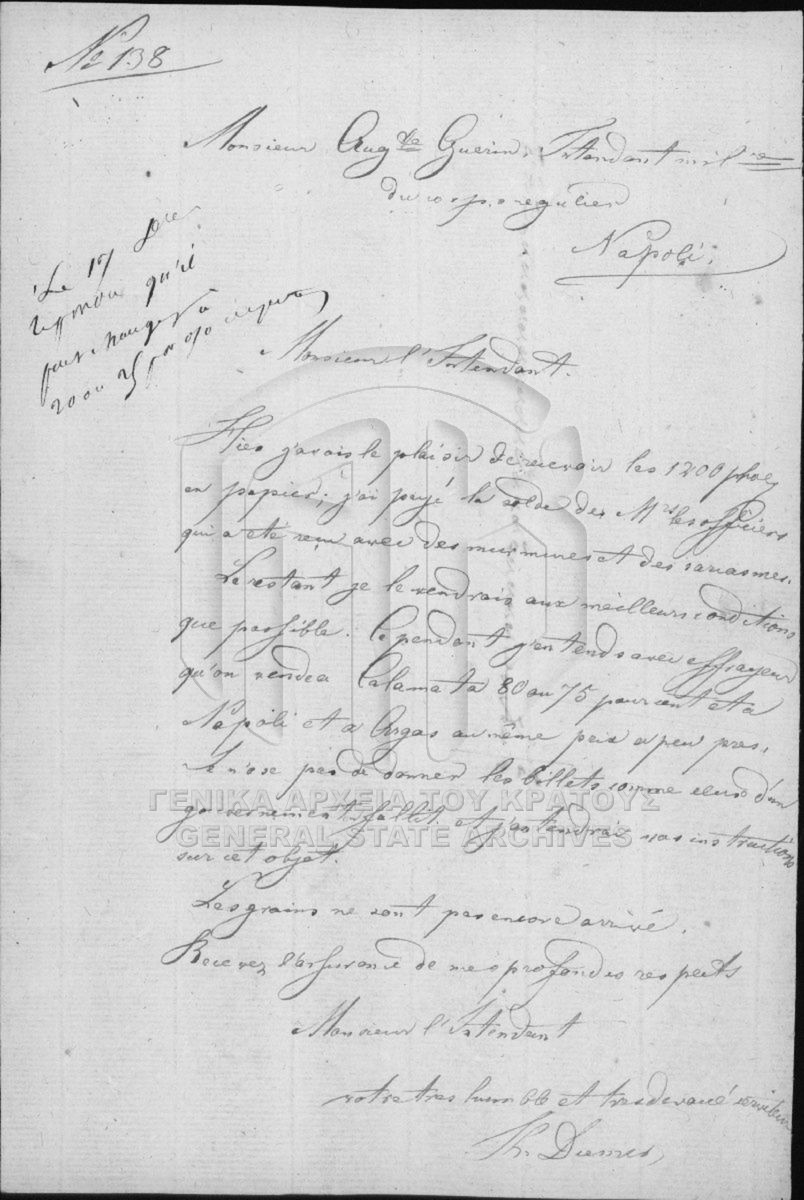 No 138
Monsieur Augte Guérin, Intendant mil re
du corps regulier
Napoli.
Le 17 Dre
repondu qu'il
peut changer à
20 ou 25 po o/o
Monsieur l'Intendant.
Hier j'avais le plaisir de recevoir les 1200 phoe
en papier; j'ai payé la solde des Mrs les officiers
qui a été reçu avec des murmures et des sarcasmes.
Le restant je le vendrais aux meilleurs conditions
que possible. Cependant j'entends avec effrayeur
qu'on vend a Calamata 80 ou 75 pour cent et a
Napoli et a Argos au même prix a peu pres.
Je n'ose pas de donner les billets comme ceux d'un
gouvernement fallit et j'attendrais vos instructions
sur cet objet.
Les grains ne sont pas encore arrivé.
Recevez l'assurance de mes profondes respects
Monsieur l'Intendant
votre tres humble et tres devoué serviteur
ΓΕΝΙΚΑ ΑΡΧΕΙΑ ΤΟΥ ΚΡΑΤΟΥΣ
GENERAL STATE ARCHIVES